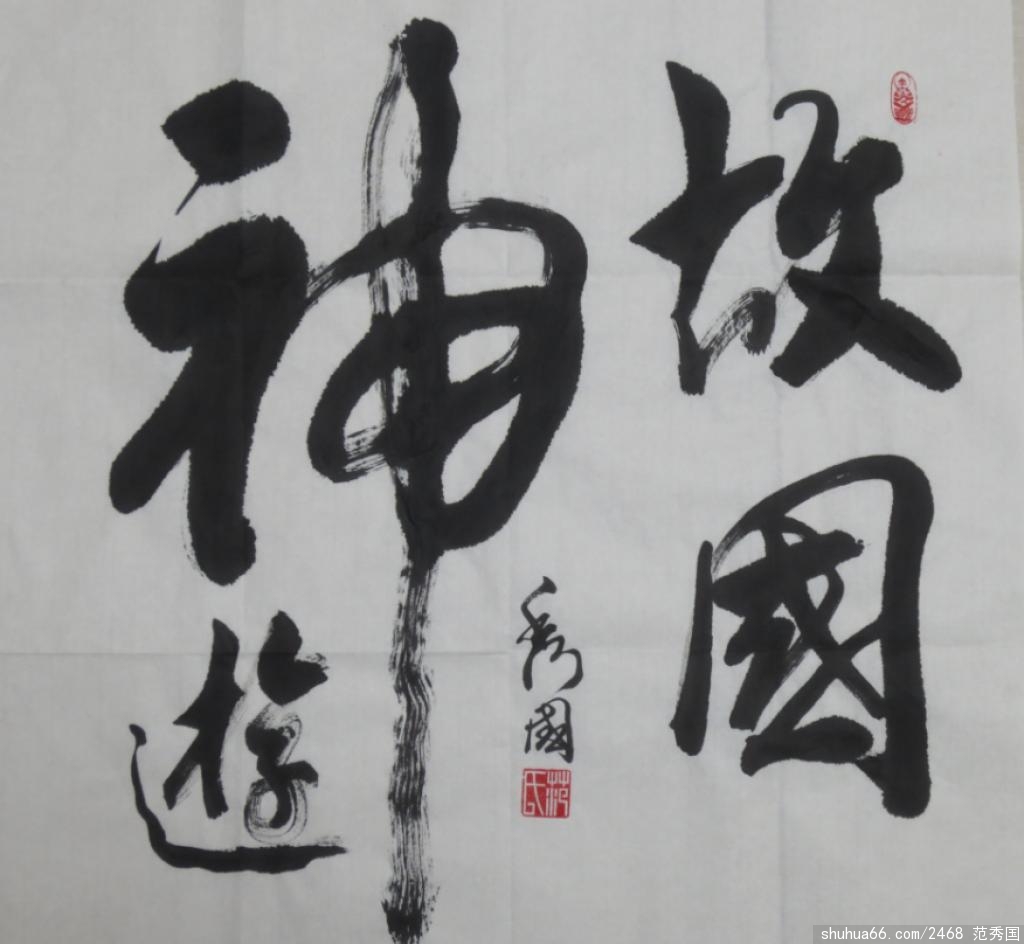 故國
神遊
秀國
范氏
shuhua66.com/2468 范秀国